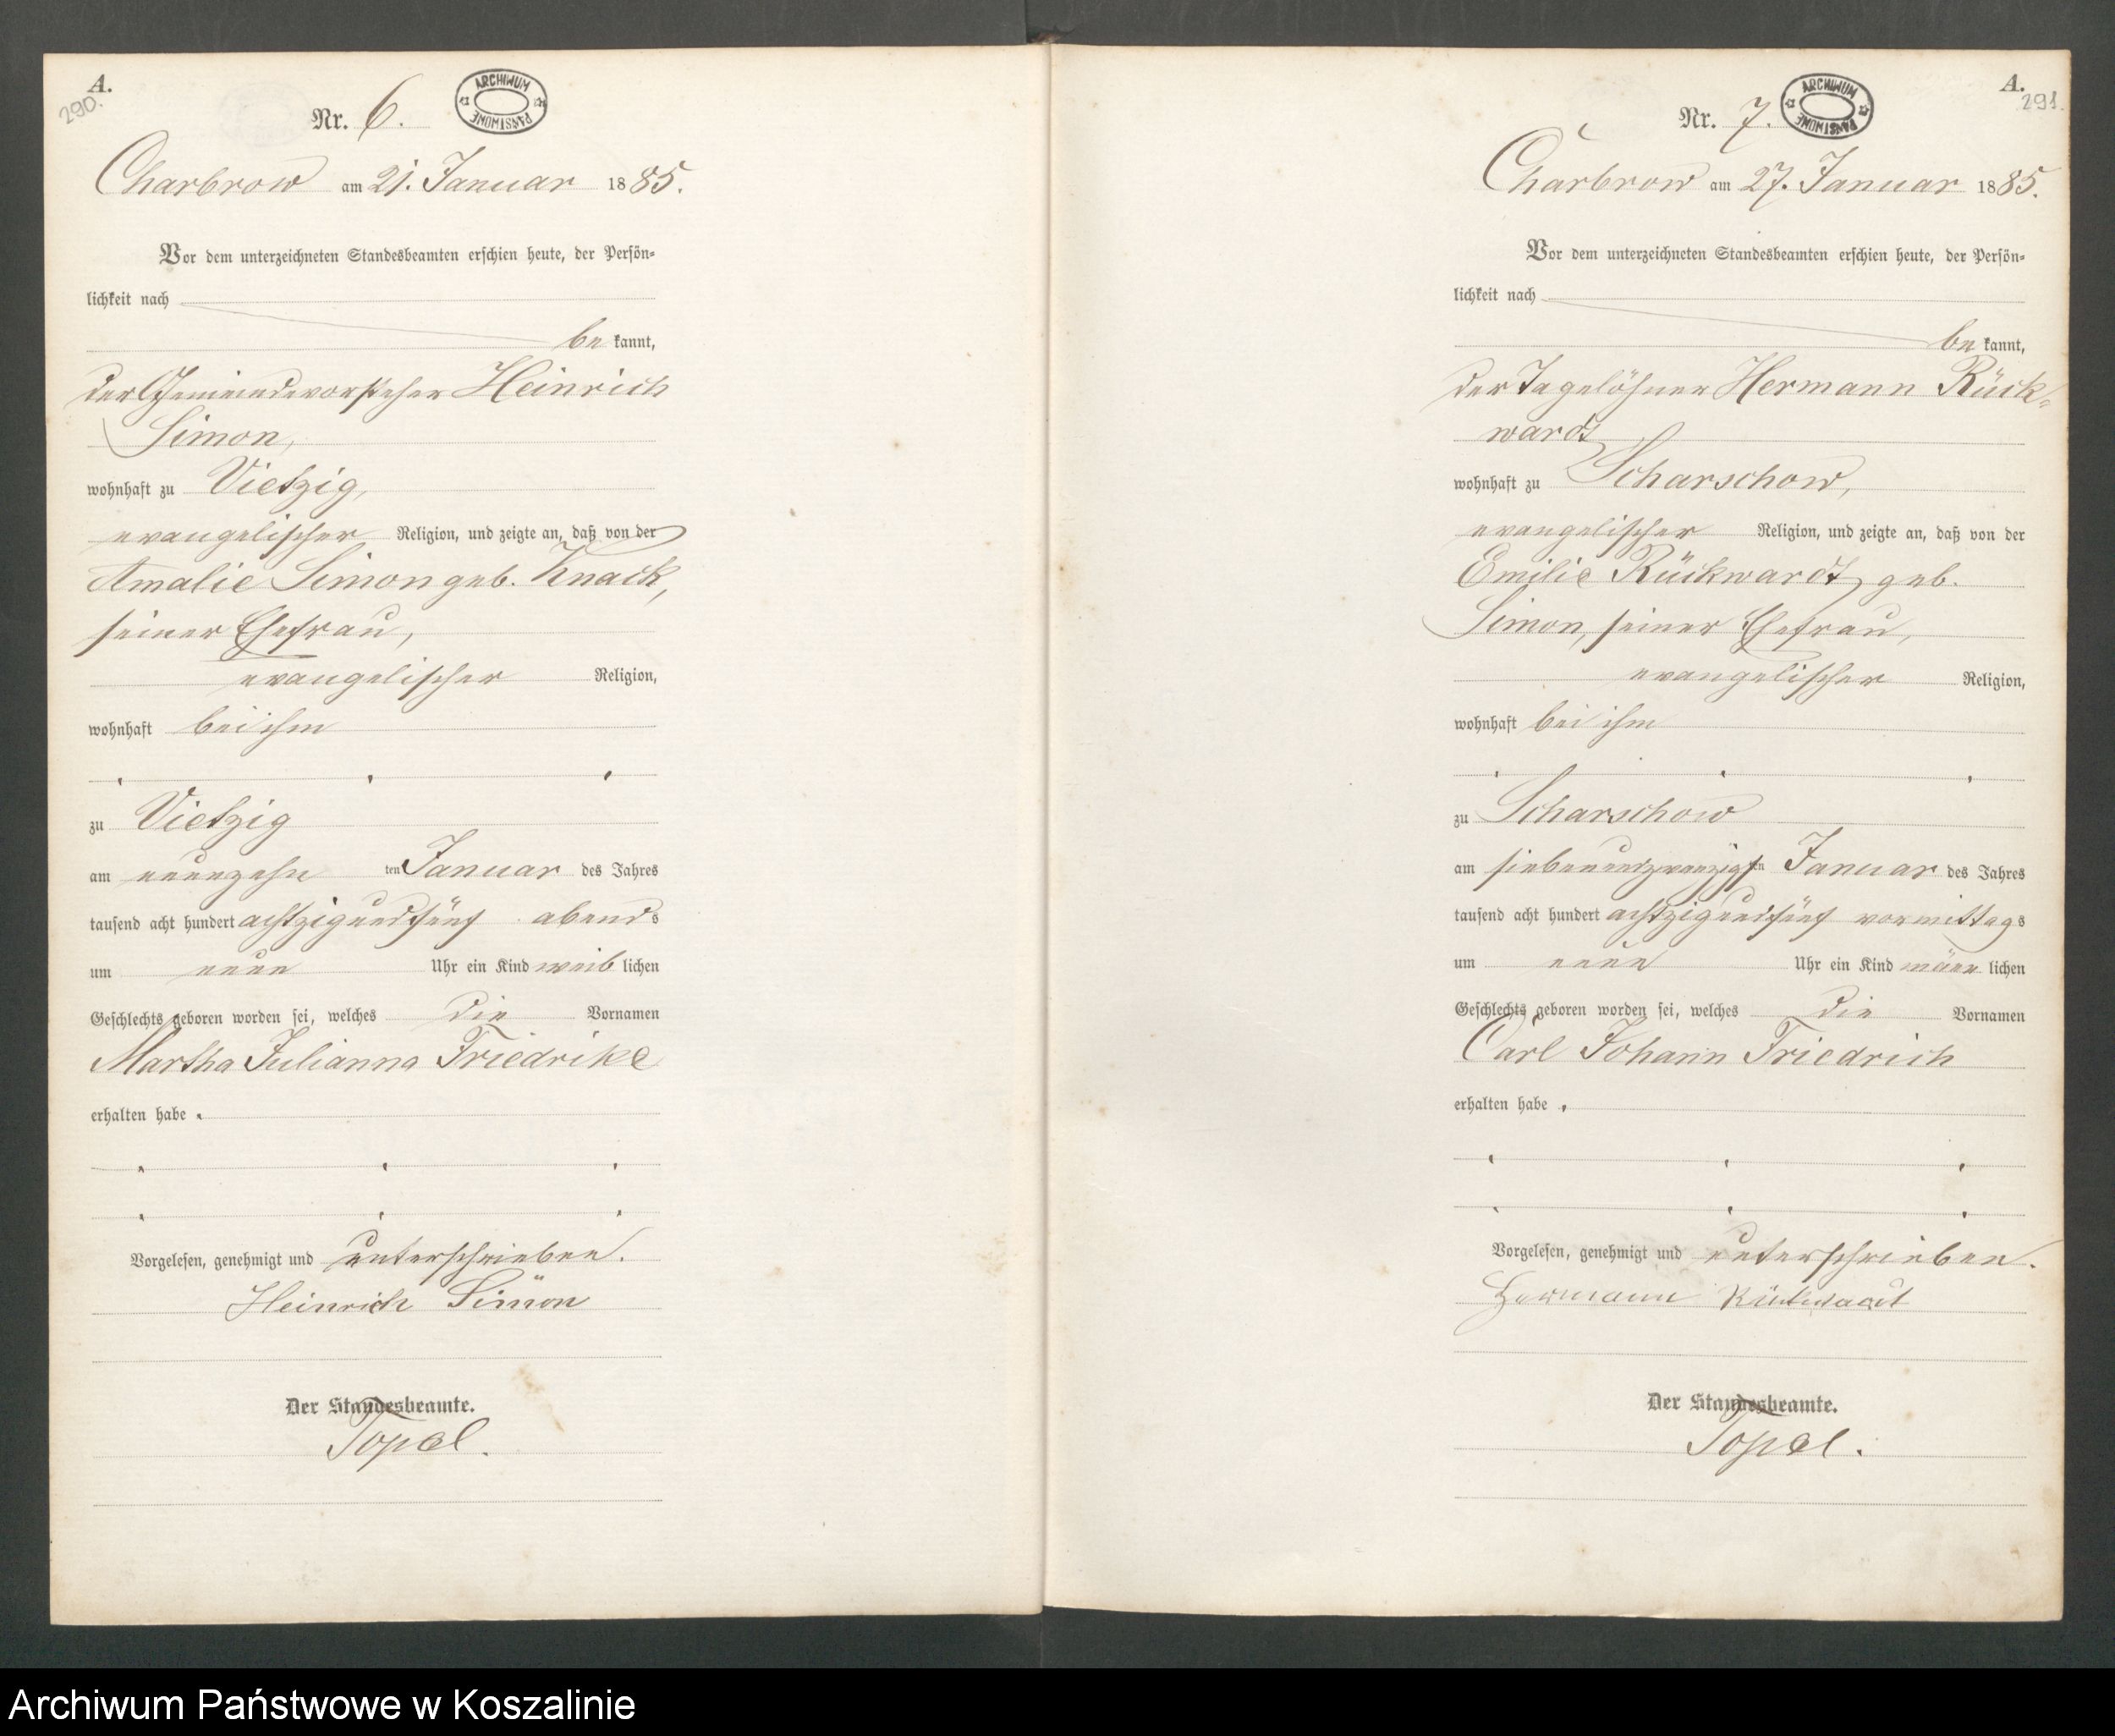 A.
290.
Nr. 6.
ARCHIWUM PAŃSTWOWE
Charbrow am 21. Januar 1885.
Vor dem unterzeichneten Standesbeamten erschien heute, der Persön-
lichkeit nach
be kannt,
der Gemeindevorsteher Heinrich
Simon,
wohnhaft zu Vietzig,
evangelischer Religion, und zeigte an, daß von der
Amalie Simon geb. Knack,
seiner Ehefrau,
evangelischer Religion,
wohnhaft bei ihm
zu Vietzig
am neunzehn ten Januar des Jahres
tausend acht hundert achtzigundfünf abends
um neun Uhr ein Kind weib lichen
Geschlechts geboren worden sei, welches die Vornamen
Martha Julianna Friedrike
erhalten habe.
Vorgelesen, genehmigt und unterschrieben.
Heinrich Simon
Der Standesbeamte.
Topel.
A.
291.
Nr. 7.
ARCHIWUM PAŃSTWOWE
Charbrow am 27. Januar 1885.
Vor dem unterzeichneten Standesbeamten erschien heute, der Persön-
lichkeit nach
be kannt,
der Tagelöhner Hermann Rück-
wardt
wohnhaft zu Scharschow,
evangelischer Religion, und zeigte an, daß von der
Emilie Rückwardt, geb.
Simon, seiner Ehefrau,
evangelischer Religion,
wohnhaft bei ihm
zu Scharschow
am siebenundzwanzigsten Januar des Jahres
tausend acht hundert achtzigundfünf vormittags
um neun Uhr ein Kind männ lichen
Geschlechts geboren worden sei, welches die Vornamen
Carl Johann Friedrich
erhalten habe.
Vorgelesen, genehmigt und unterschrieben.
Hermann Rückwardt
Der Standesbeamte.
Topel.
Archiwum Państwowe w Koszalinie